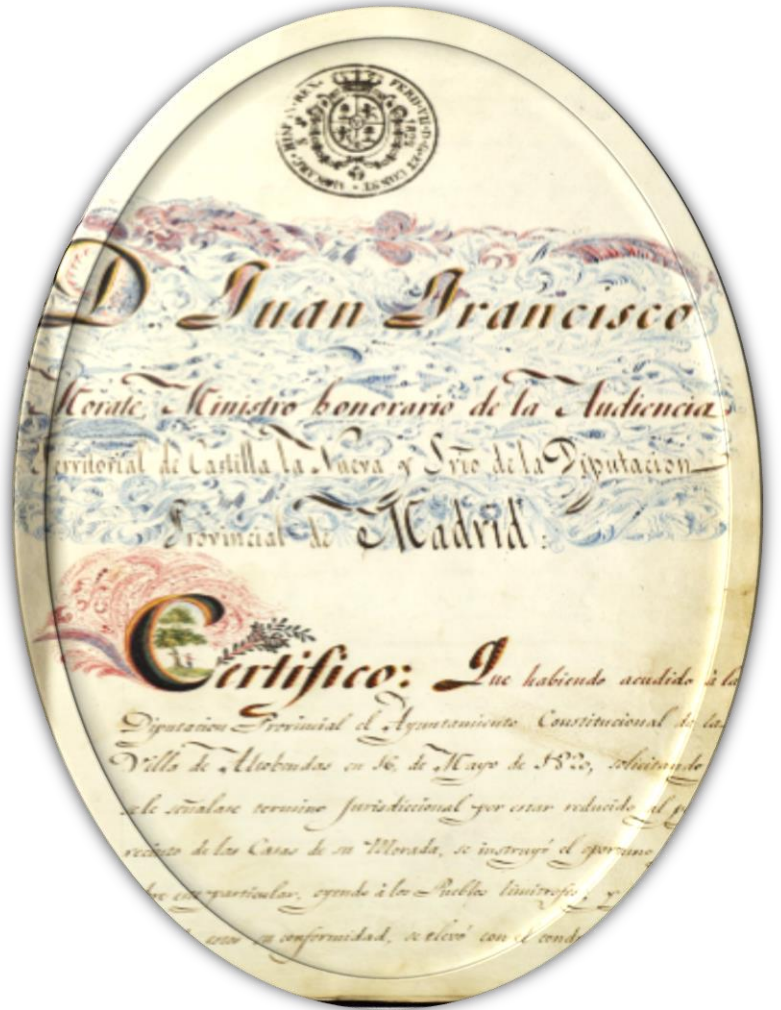 HISPAN. REX. FERD. VII. D. G. ET CONST.
D. Juan Francisco
Morate, Ministro honorario de la Audiencia
Territorial de Castilla la Nueva y Srio de la Diputacion
Provincial de Madrid:
Certifico: Que habiendo acudido à la
Diputacion Provincial el Ayuntamiento Constitucional de la
Villa de Alcobendas en 16, de Mayo de 1820, solicitando
se le señalase termino Jurisdiccional por estar reducido al
recinto de las Casas de su Morada, se instruyó el oportuno
este particular, oyendo à los Pueblos limitrofes; y
estos su conformidad, se elevó con el